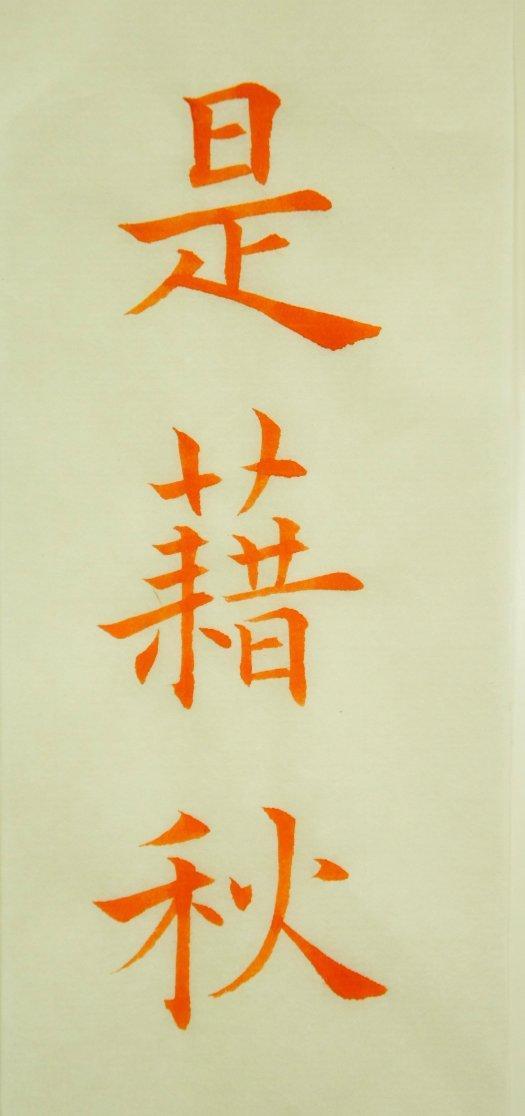 是藉秋